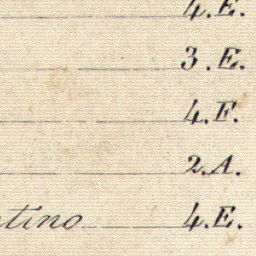 4.E.
3.E.
4.F.
2.A.
tino 4.E.